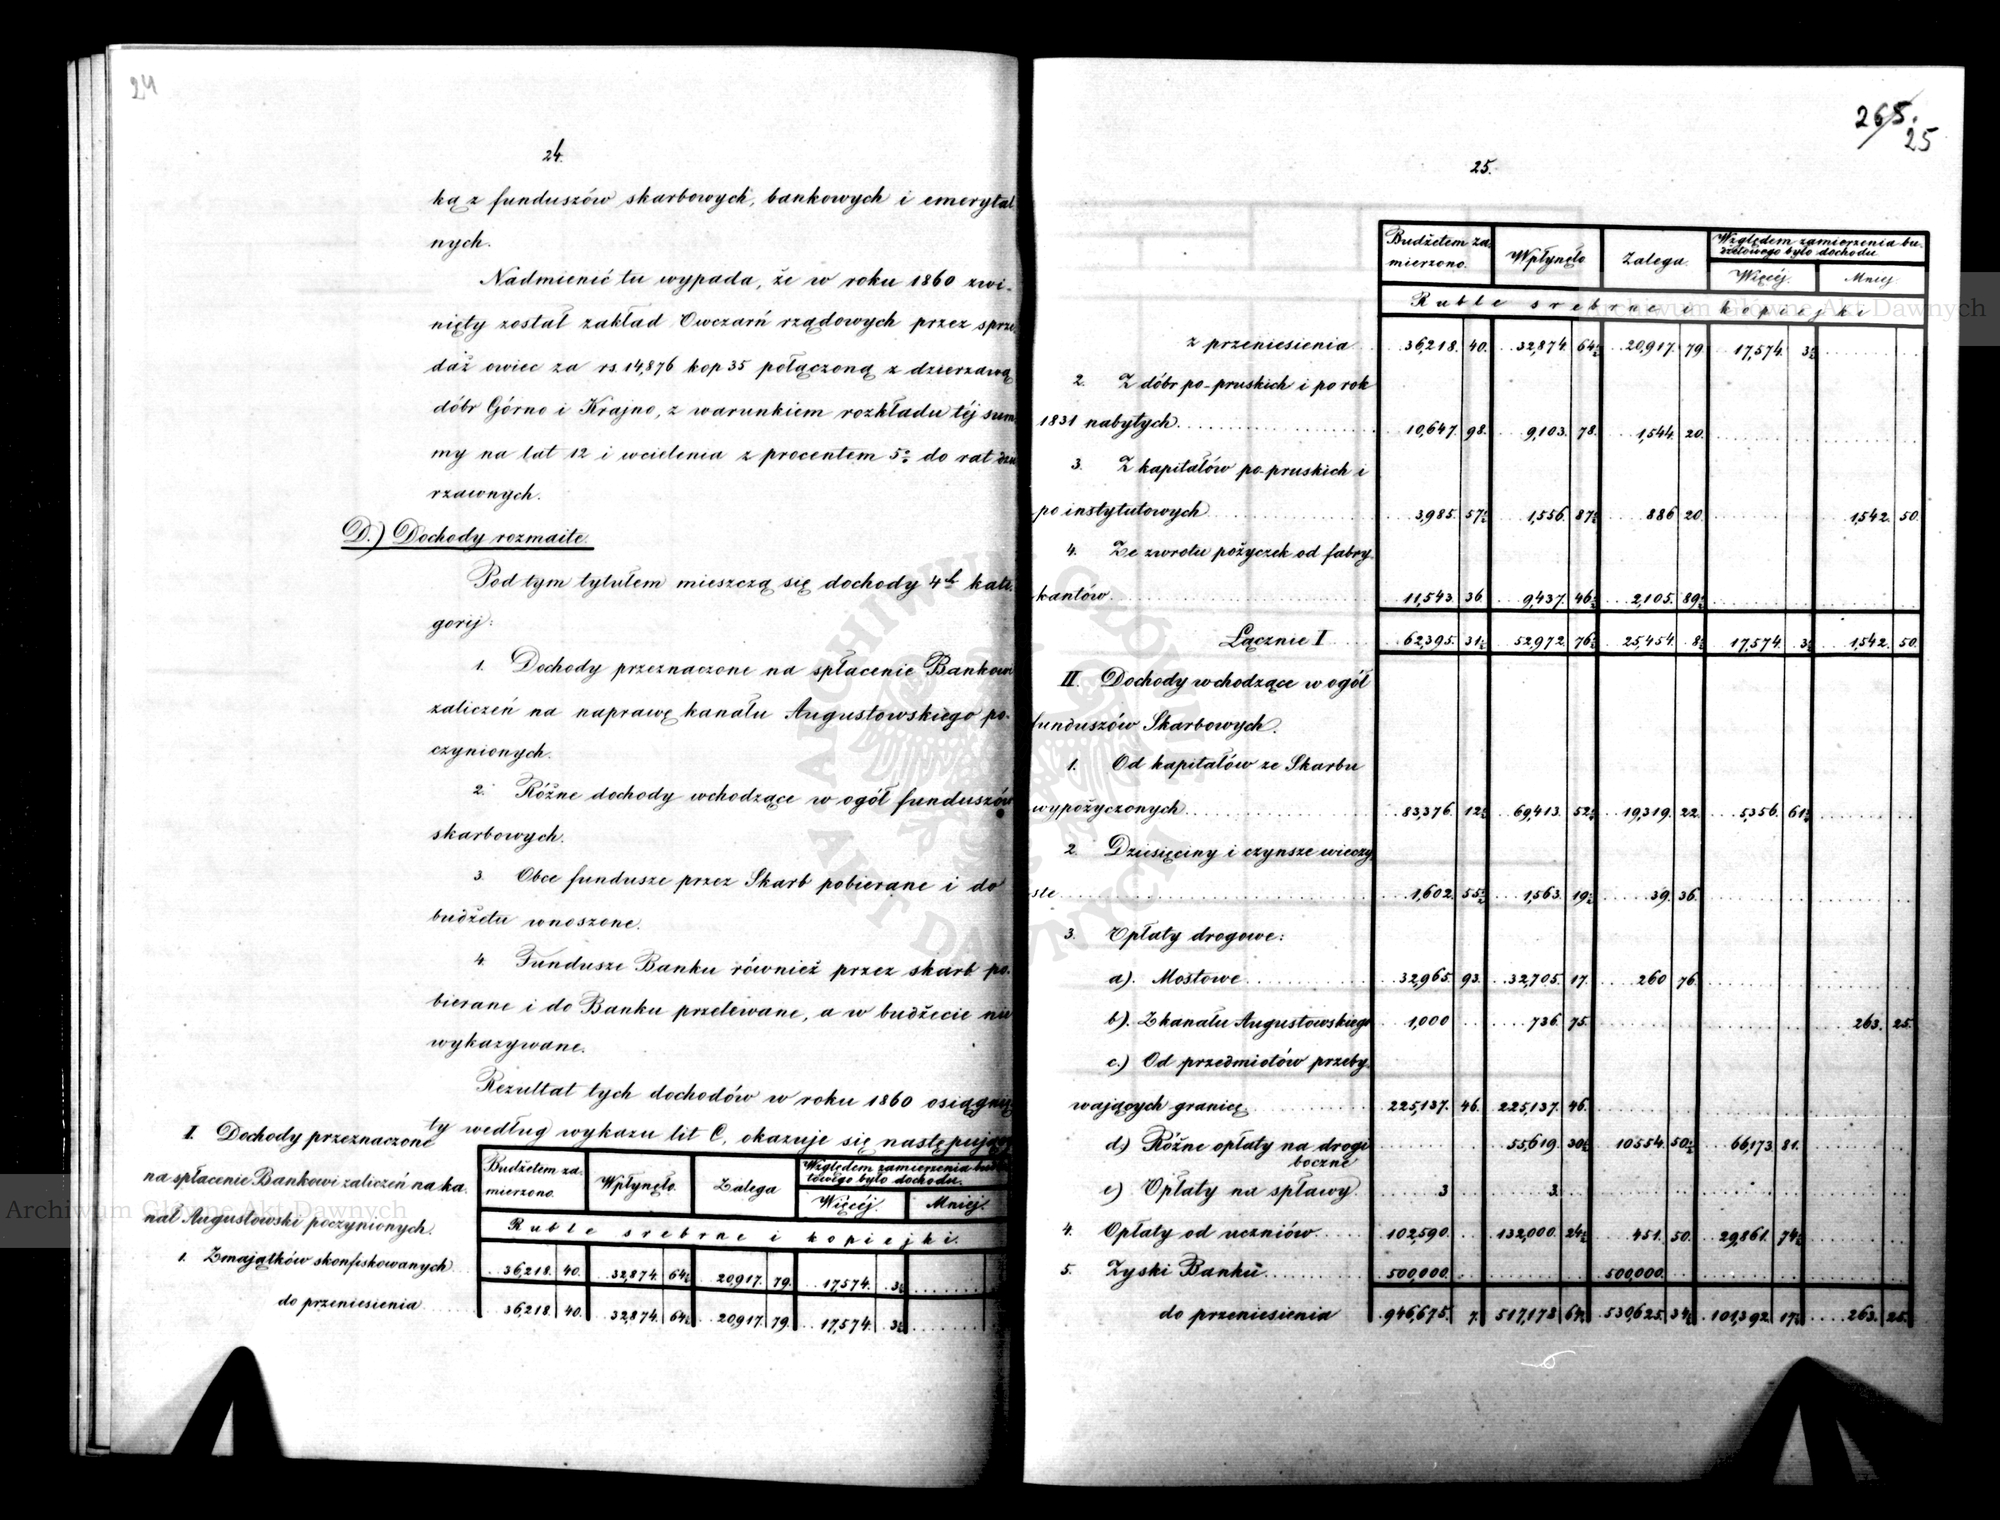 24
24.
ką z funduszów skarbowych, bankowych i emerytal
nych.
Nadmienić tu wypada, że w roku 1860 zwi-
nięty został zakład Owczarń rządowych przez sprze
daż owiec za rs. 14,876 kop 35 połączoną z dzierzawą
dóbr Górno i Krajno, z warunkiem rozkładu téj sum
my na lat 12 i wcielenia z procentem 5% do rat dzie
rzawnych.
D.) Dochody rozmaite.
Pod tym tytułem mieszczą się dochody 4ch kate
gorij:
1. Dochody przeznaczone na spłacenie Bankowi
zaliczeń na naprawę kanału Augustowskiego po-
czynionych.
2. Różne dochody wchodzące w ogół funduszów
skarbowych.
3. Obce fundusze przez Skarb pobierane i do
budżetu wnoszone.
4. Fundusze Banku również przez skarb po-
bierane i do Banku przelewane, a w budżecie nie
wykazywane.
Rezultat tych dochodów w roku 1860 osiągnię
ty według wykazu lit C, okazuje się następujący
I. Dochody przeznaczone
na spłacenie Bankowi zaliczeń na ka
nał Augustowski poczynionych.
Budżetem za- mierzono. Wpłynęło. Zalega Względem zamierzenia budże towego było dochodu.
Więcéj. Mniej.
Ruble srebrne i kopiejki.
1. Z majątków skonfiskowanych 36,218. 40. 32,874. 64½ 20,917. 79. 17,574. 3½
do przeniesienia 36,218. 40. 32,874. 64½ 20,917. 79. 17,574. 3½
265.
25
25.
Budżetem za- mierzono. Wpłynęło Zalega. Względem zamierzenia bu- dżetowego było dochodu
Więcéj. Mniej.
Ruble srebrne i kopiejki
z przeniesienia 36,218. 40. 32,874. 64½ 20,917. 79. 17,574. 3½
2. Z dóbr po-pruskich i po rok
1831 nabytych. 10,647. 98. 9,103. 78. 1,544. 20.
3. Z kapitałów po-pruskich i
po instytutowych 3,985. 57½ 1,556. 87½ 886 20. 1,542. 50.
4. Ze zwrotu pożyczek od fabry-
kantów. 11,543. 36. 9,437. 46½ 2,105. 89½
Łącznie I 62,395. 31½ 52,972. 76½ 25,454. 8½ 17,574. 3½ 1,542. 50.
II. Dochody wchodzące w ogół
funduszów Skarbowych.
1. Od kapitałów ze Skarbu
wypożyczonych 83,376. 12½ 69,413. 52½ 19,319. 22. 5,356. 61½
2. Dziesięciny i czynsze wieczy
ste 1,602. 55½ 1,563. 19½ 39. 36.
3. Opłaty drogowe:
a). Mostowe 32,965. 93. 32,705. 17. 260 76.
b). Z kanału Augustowskiego 1,000 736. 75. 263. 25.
c.) Od przedmiotów przeby
wających granicę 225,137. 46. 225,137. 46.
d.) Różne opłaty na drogi
boczne 55,619. 30½ 10,554. 50½ 66,173. 81.
e) Opłaty na spławy. 3 3.
4. Opłaty od uczniów 102,590. 132,000. 24½ 451. 50. 29,861. 74½
5. Zyski Banku 500,000. 500,000.
do przeniesienia 946,675. 7. 517,178. 64½ 530,625. 34½ 101,392. 17½ 263. 25.
Archiwum Główne Akt Dawnych
Archiwum Główne Akt Dawnych
ARCHIWUM GŁÓWNE AKT DAWNYCH